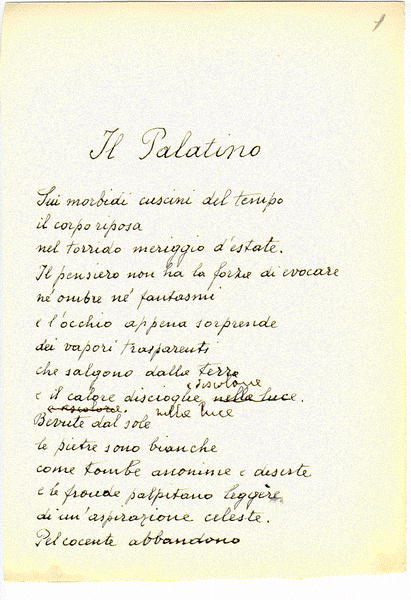 1
Il Palatino
Sui morbidi cuscini del tempo
il corpo riposa
nel torrido meriggio d'estate.
Il pensiero non ha la forza di evocare
né ombre né fantasmi
e l'occhio appena sorprende
dei vapori trasparenti
che salgono dalla terra
e discolora
e il calore discioglie nella luce.
e discolora. nella luce
Bevute dal sole
le pietre sono bianche
come tombe anonime e deserte
e le fronde palpitano leggère
di un'aspirazione celeste.
Pel cocente abbandono